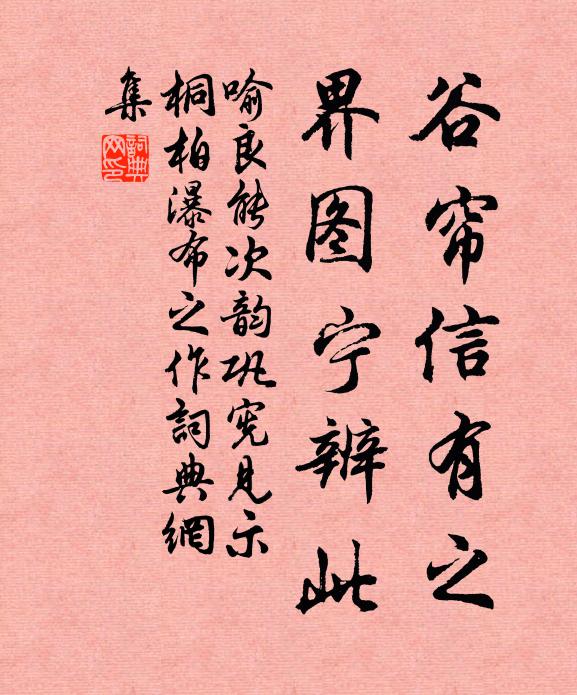 谷帘信有之
界图宁辨此
喻良能次韵巩宪见示
桐柏瀑布之作詞典網
集
詞典
网印